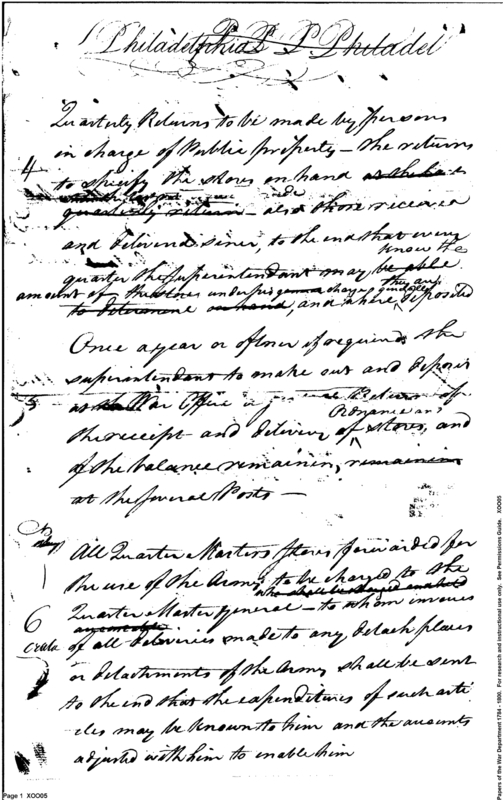 Philadelphia P. P. Philadel
Quarterly Returns to be made by persons
in charge of Public property – the returns
4
to specify the stores on hand as the
quarterly return – also those received
and delivered since, to the end that every
know the
quarter the superintendant may be able
amount of the stores under his charge they are
to determine on hand, and where deposited
Once a year or oftner if required the
superintendant to make out and deposit
5
in the War Office a general Return of
Ordnance and
the receipt and delivery of stores, and
of the balance remaining, remaining
at the several Posts –
All Quarter Masters stores forwarded for
the use of the Army to be charged to the
who shall be
6
Quarter Master general – to whom invoices
accountable
of all deliveries made to any detach places
or detachments of the Army shall be sent
to the end that the expenditures of such arti
cles may be known to him and the accounts
adjusted with him to enable him
Page 1 XOO05
Papers of the War Department 1784 - 1800. For research and instructional use only. See Permissions Guide. XOO05